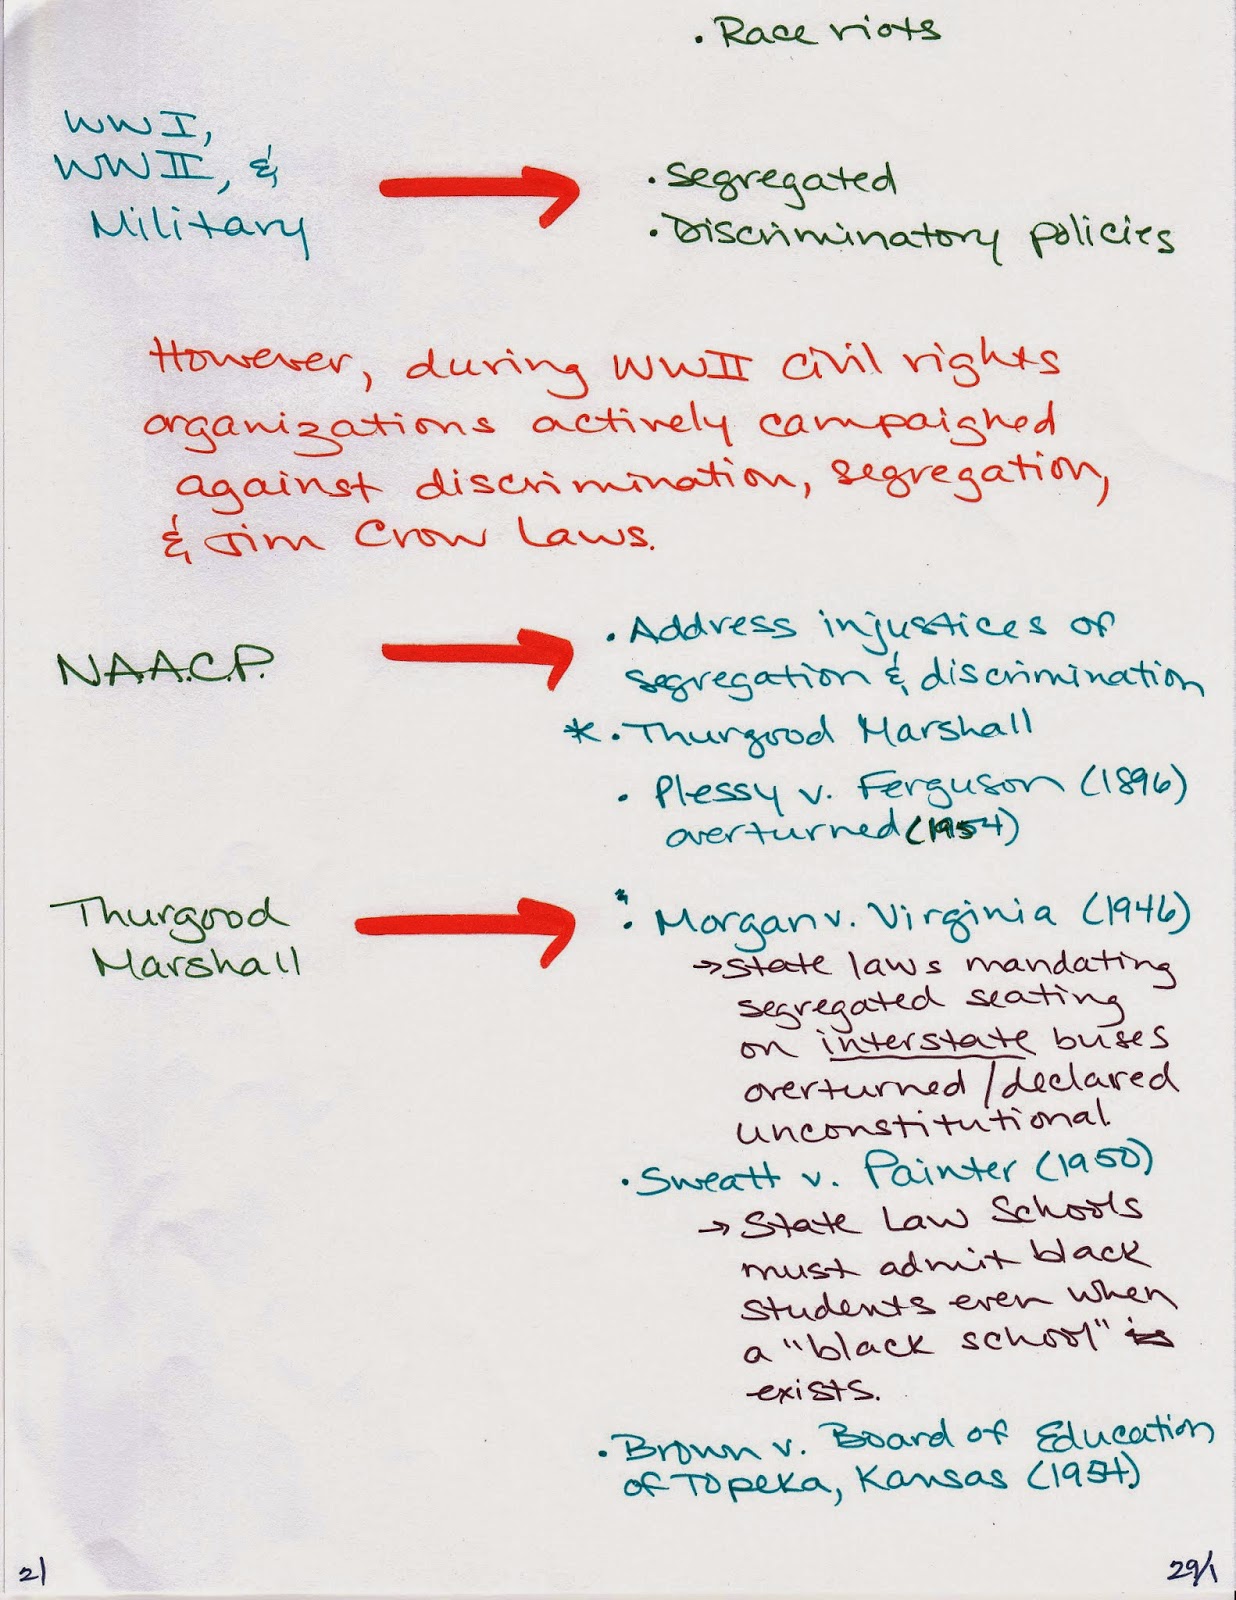 • Race riots
WW I,
WW II, &
Military
• Segregated
• Discriminatory policies
However, during WWII civil rights
organizations actively campaighed
against discrimination, segregation,
& Jim Crow Laws.
N.A.A.C.P.
• Address injustices of
segregation & discrimination
* • Thurgood Marshall
• Plessy v. Ferguson (1896)
overturned (1954)
Thurgood
Marshall
• Morgan v. Virginia (1946)
→ State laws mandating
segregated seating
on interstate buses
overturned/declared
unconstitutional.
• Sweatt v. Painter (1950)
→ State Law Schools
must admit black
students even when
a "black school" is
exists.
• Brown v. Board of Education
of Topeka, Kansas (1954)
2/
29/1